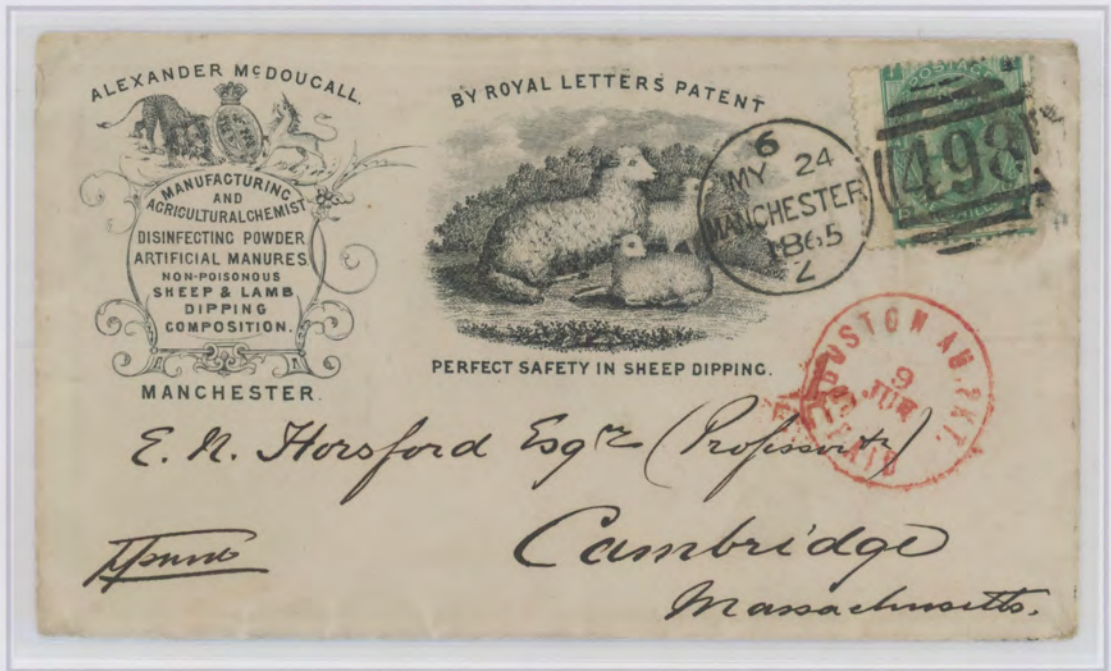 ALEXANDER McDOUGALL.
MANUFACTURING
AND
AGRICULTURAL CHEMIST
DISINFECTING POWDER
ARTIFICIAL MANURES
NON-POISONOUS
SHEEP & LAMB
DIPPING
COMPOSITION.
MANCHESTER.
BY ROYAL LETTERS PATENT
PERFECT SAFETY IN SHEEP DIPPING.
6
MY 24
MANCHESTER
1865
Z
POSTAGE
498
BOSTON AM. PKT.
9
JUN
PAID
E. N. Horsford Esqre (Professor &c)
Cambridge
Massachusetts.